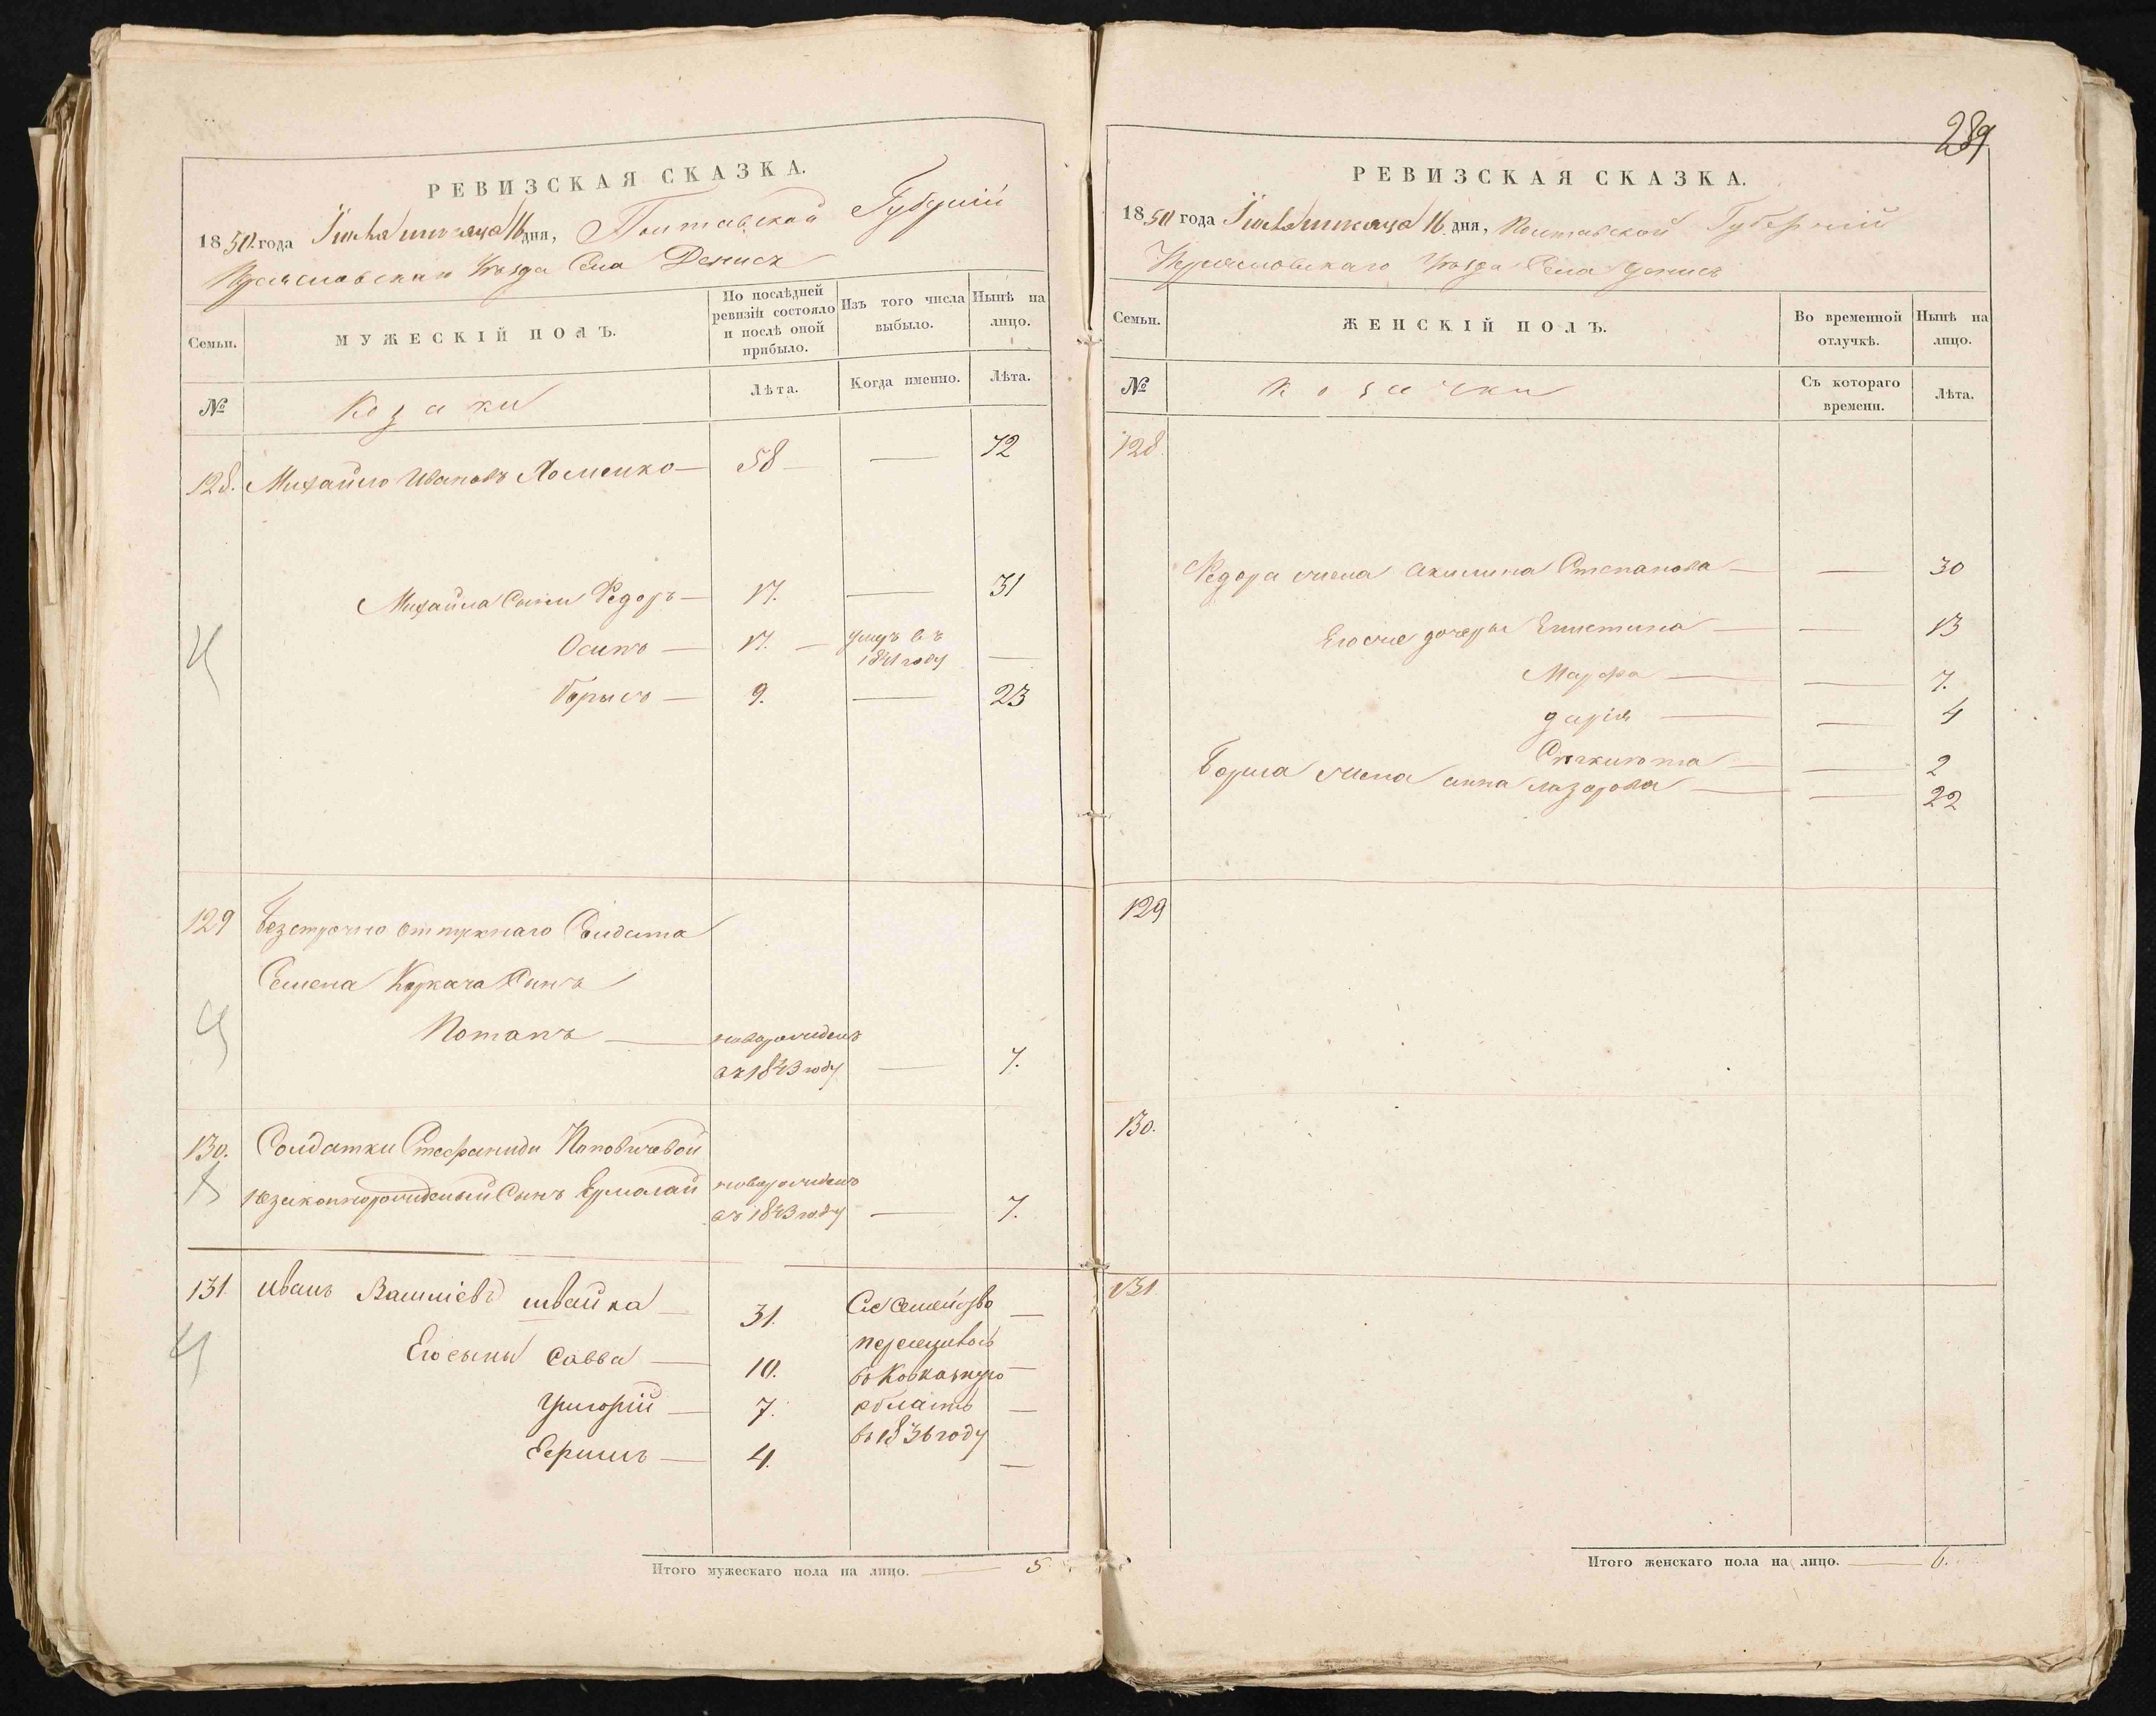 РЕВИЗСКАЯ СКАЗКА.
1850 года Іюля месяца 16 дня, Полтавской Губерніи
Переяславскаго Уезда Села Денисъ
Семьи.
МУЖЕСКІЙ ПОЛЪ.
По послѣдней ревизіи состояло и послѣ оной прибыло.
Изъ того числа выбыло.
Нынѣ на лицо.
№
Козаки
Лѣта.
Когда именно.
Лѣта.
128. Михайло Ивановъ Хоменко — 58 — — 72
Михайла Сыны Федоръ — 17. — 31
Осипъ — 17. — умеръ въ —
1841 году
Борысъ — 9. — 23
129 Безсрочно отпускнаго Солдата
Семена Сынъ
Потапъ — новорожденъ
въ 1843 году — 7.
130. Солдатки Стефаниди Поповичевой
незаконнорожденый Сынъ Ермолай новорожденъ
въ 1843 году — 7.
131. Иванъ швайка — 31. Съ семейство —
Его сыны Савва — 10. въ Кавказкую —
Григорій — 7. область —
въ 1836 году
Ефимъ — 4. —
Итого мужескаго пола на лицо. — 5.
289
РЕВИЗСКАЯ СКАЗКА.
1850 года Іюля месяца 16 дня, Полтавской Губерніи
Переясловскаго Уезда Села Денисъ
Семьи.
ЖЕНСКІЙ ПОЛЪ.
Во временной отлучкѣ.
Нынѣ на лицо.
№
козачки
Съ котораго времени.
Лѣта.
128.
Федора жена Акилина Степанова — — 30
Его же дочеры — — 13
Марфа — — 7.
дарія — — 4
— — 2
Бориса жена анна лазарова — — 22
129
130.
131
Итого женскаго пола на лицо. — 6.